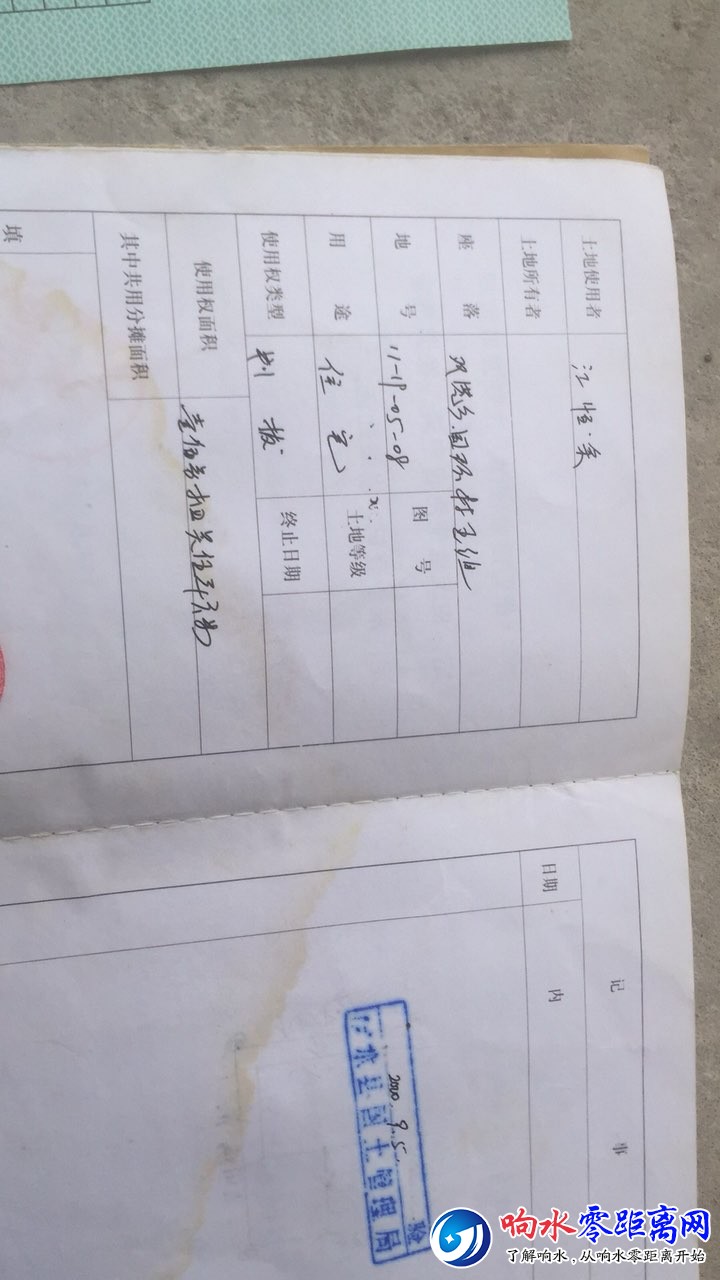 土地使用者 江恒余
土地所有者
座落
地号 11-19-05-08 图号
用途 住宅 土地等级
使用权类型 划拨 终止日期
使用权面积
其中共用分摊面积
填
记 事
日期 内
2000.9.5 验
响水县国土管理局
响水零距离网
了解响水,从响水零距离开始